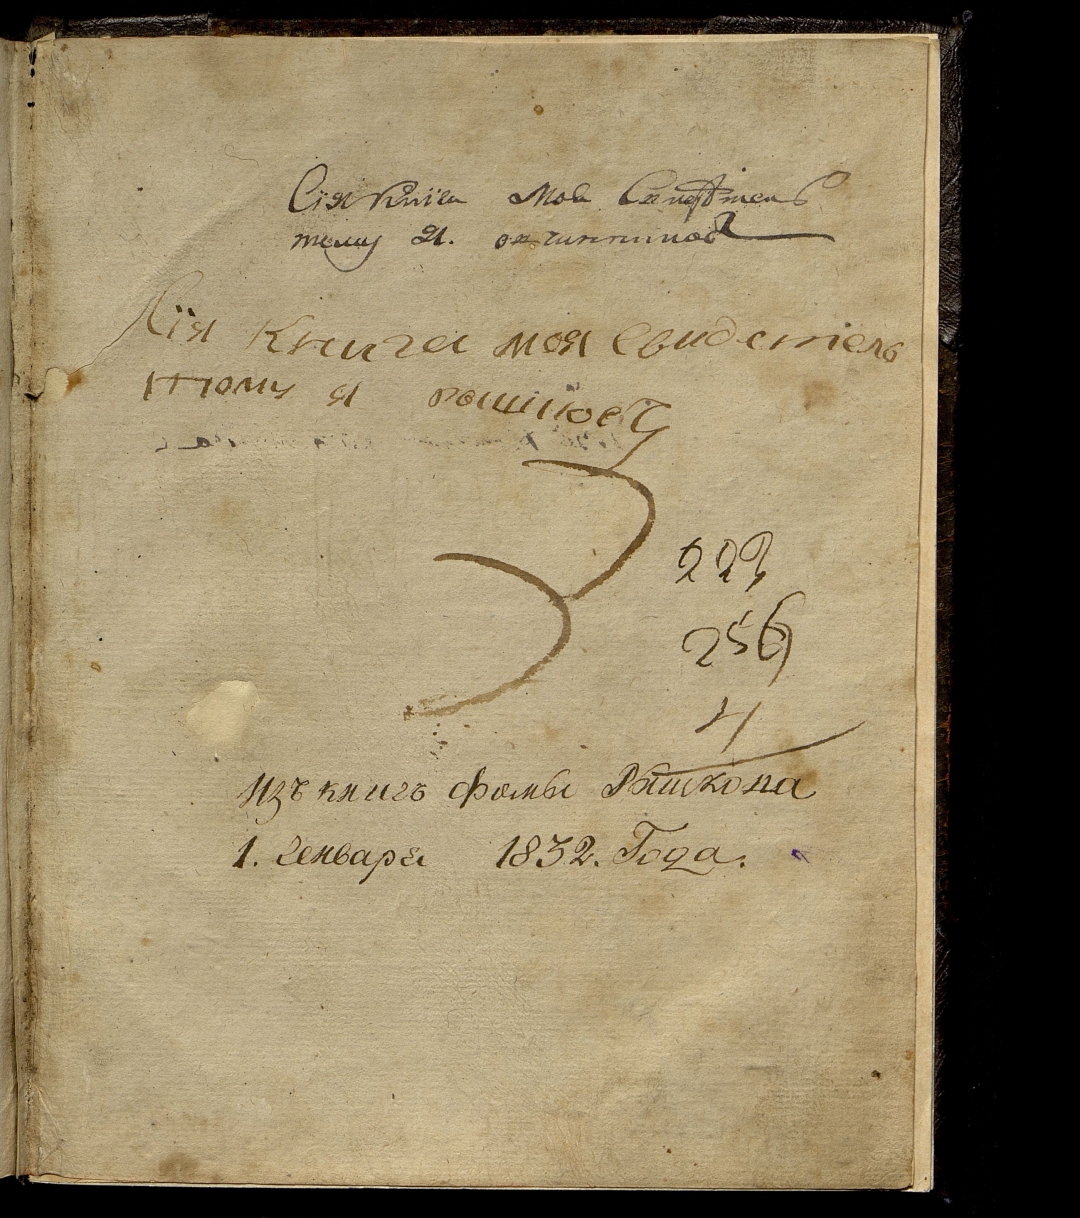 Сія Книга Моя Свидѣтель
тому Я.
Сія Книга моя свидетель
тому я
223
256
4
Изъ книгъ фомы Рышкова
1. Генваря 1832. Года.